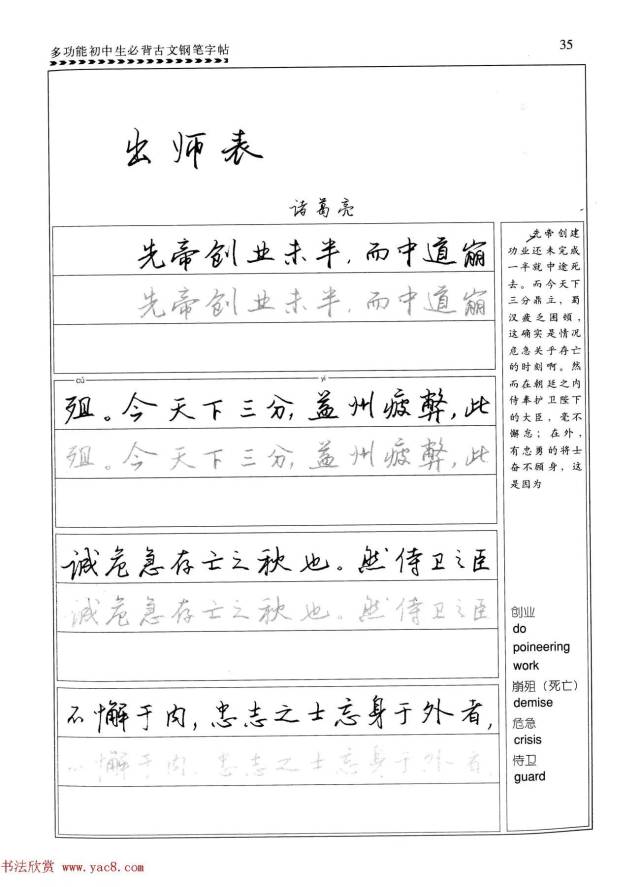 多功能初中生必背古文钢笔字帖
35
出师表
诸葛亮
先帝创业未半，而中道崩
先帝创业未半，而中道崩
cú
殂。今天下三分，益州疲弊，此
殂。今天下三分，益州疲弊，此
诚危急存亡之秋也。然侍卫之臣
诚危急存亡之秋也。然侍卫之臣
不懈于内，忠志之士忘身于外者，
不懈于内，忠志之士忘身于外者，
先帝创建
功业还未完成
一半就中途死
去。而今天下
三分鼎立，蜀
汉疲乏困顿，
这确实是情况
危急关乎存亡
的时刻啊。然
而在朝廷之内
侍奉护卫陛下
的大臣，毫不
懈怠；在外，
有忠勇的将士
奋不顾身，这
是因为
创业
do
poineering
work
崩殂（死亡）
demise
危急
crisis
侍卫
guard
书法欣赏 www.yac8.com